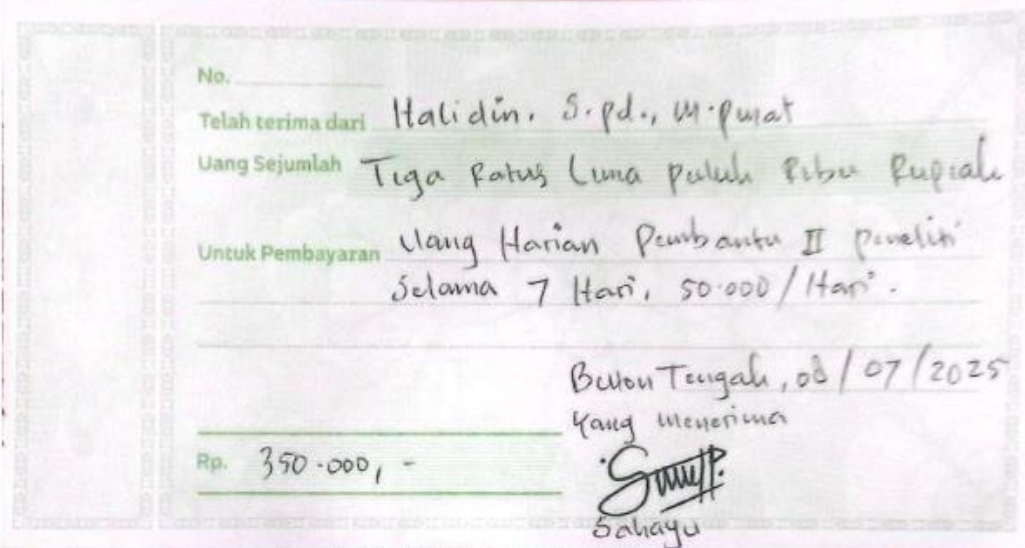 No.
Telah terima dari Halidin. S.pd., M.pmat
Uang Sejumlah Tiga Ratus Lima puluh Ribu Rupiah
Untuk Pembayaran Uang Harian Pembantu II peneliti
Selama 7 Hari, 50.000/Hari.
Buton Tengah, 08/07/2025
Yang menerima
Rp. 350.000,-
Sahayu